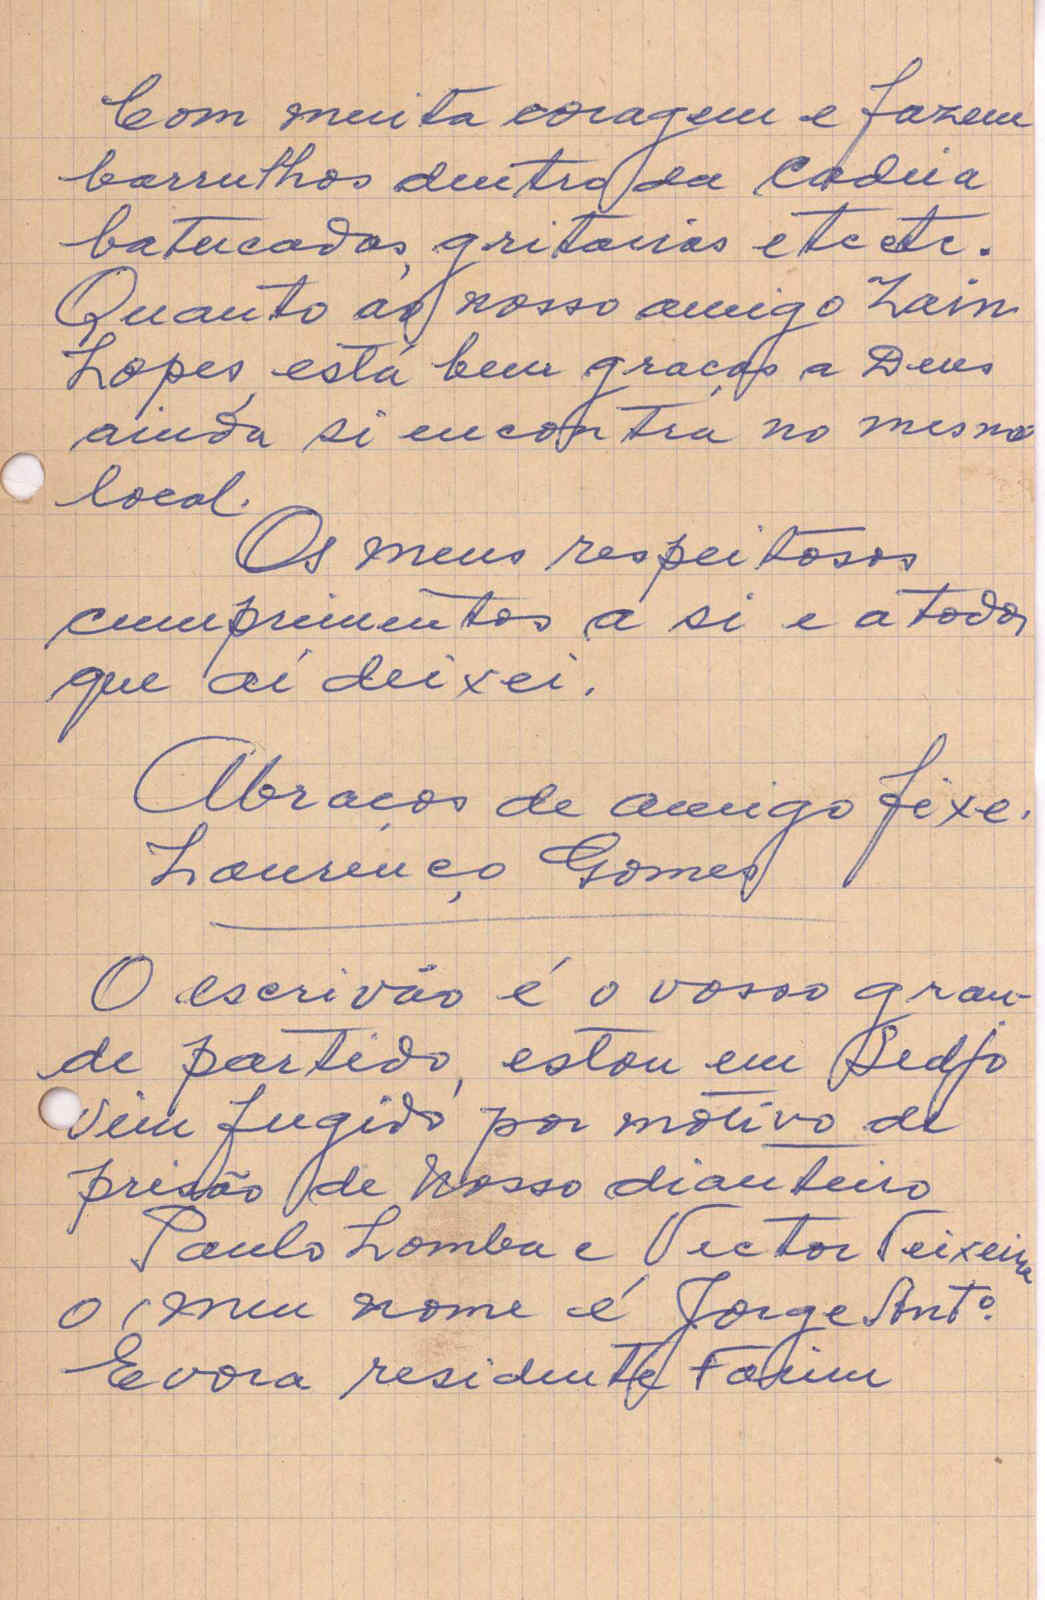 Com muita coragem e fazem
barrulhos dentro da Cadeia
batucadas, gritarias etc etc.
Quanto ao nosso amigo Lain
Lopes, está bem graças a Deus
ainda si encontra no mesmo
local.
Os meus respeitosos
cumprimentos a si e a todos
que aí deixei.
Abraços de amigo fixe.
Lourenço Gomes
O escrivão é o vosso gran-
de partido, estou em Bedjo
vim fugido por motivo de
prisão de nosso dianteiro
Paulo Lomba e Vector Teixeira
o meu nome é Jorge Antº.
Evora residente Farim